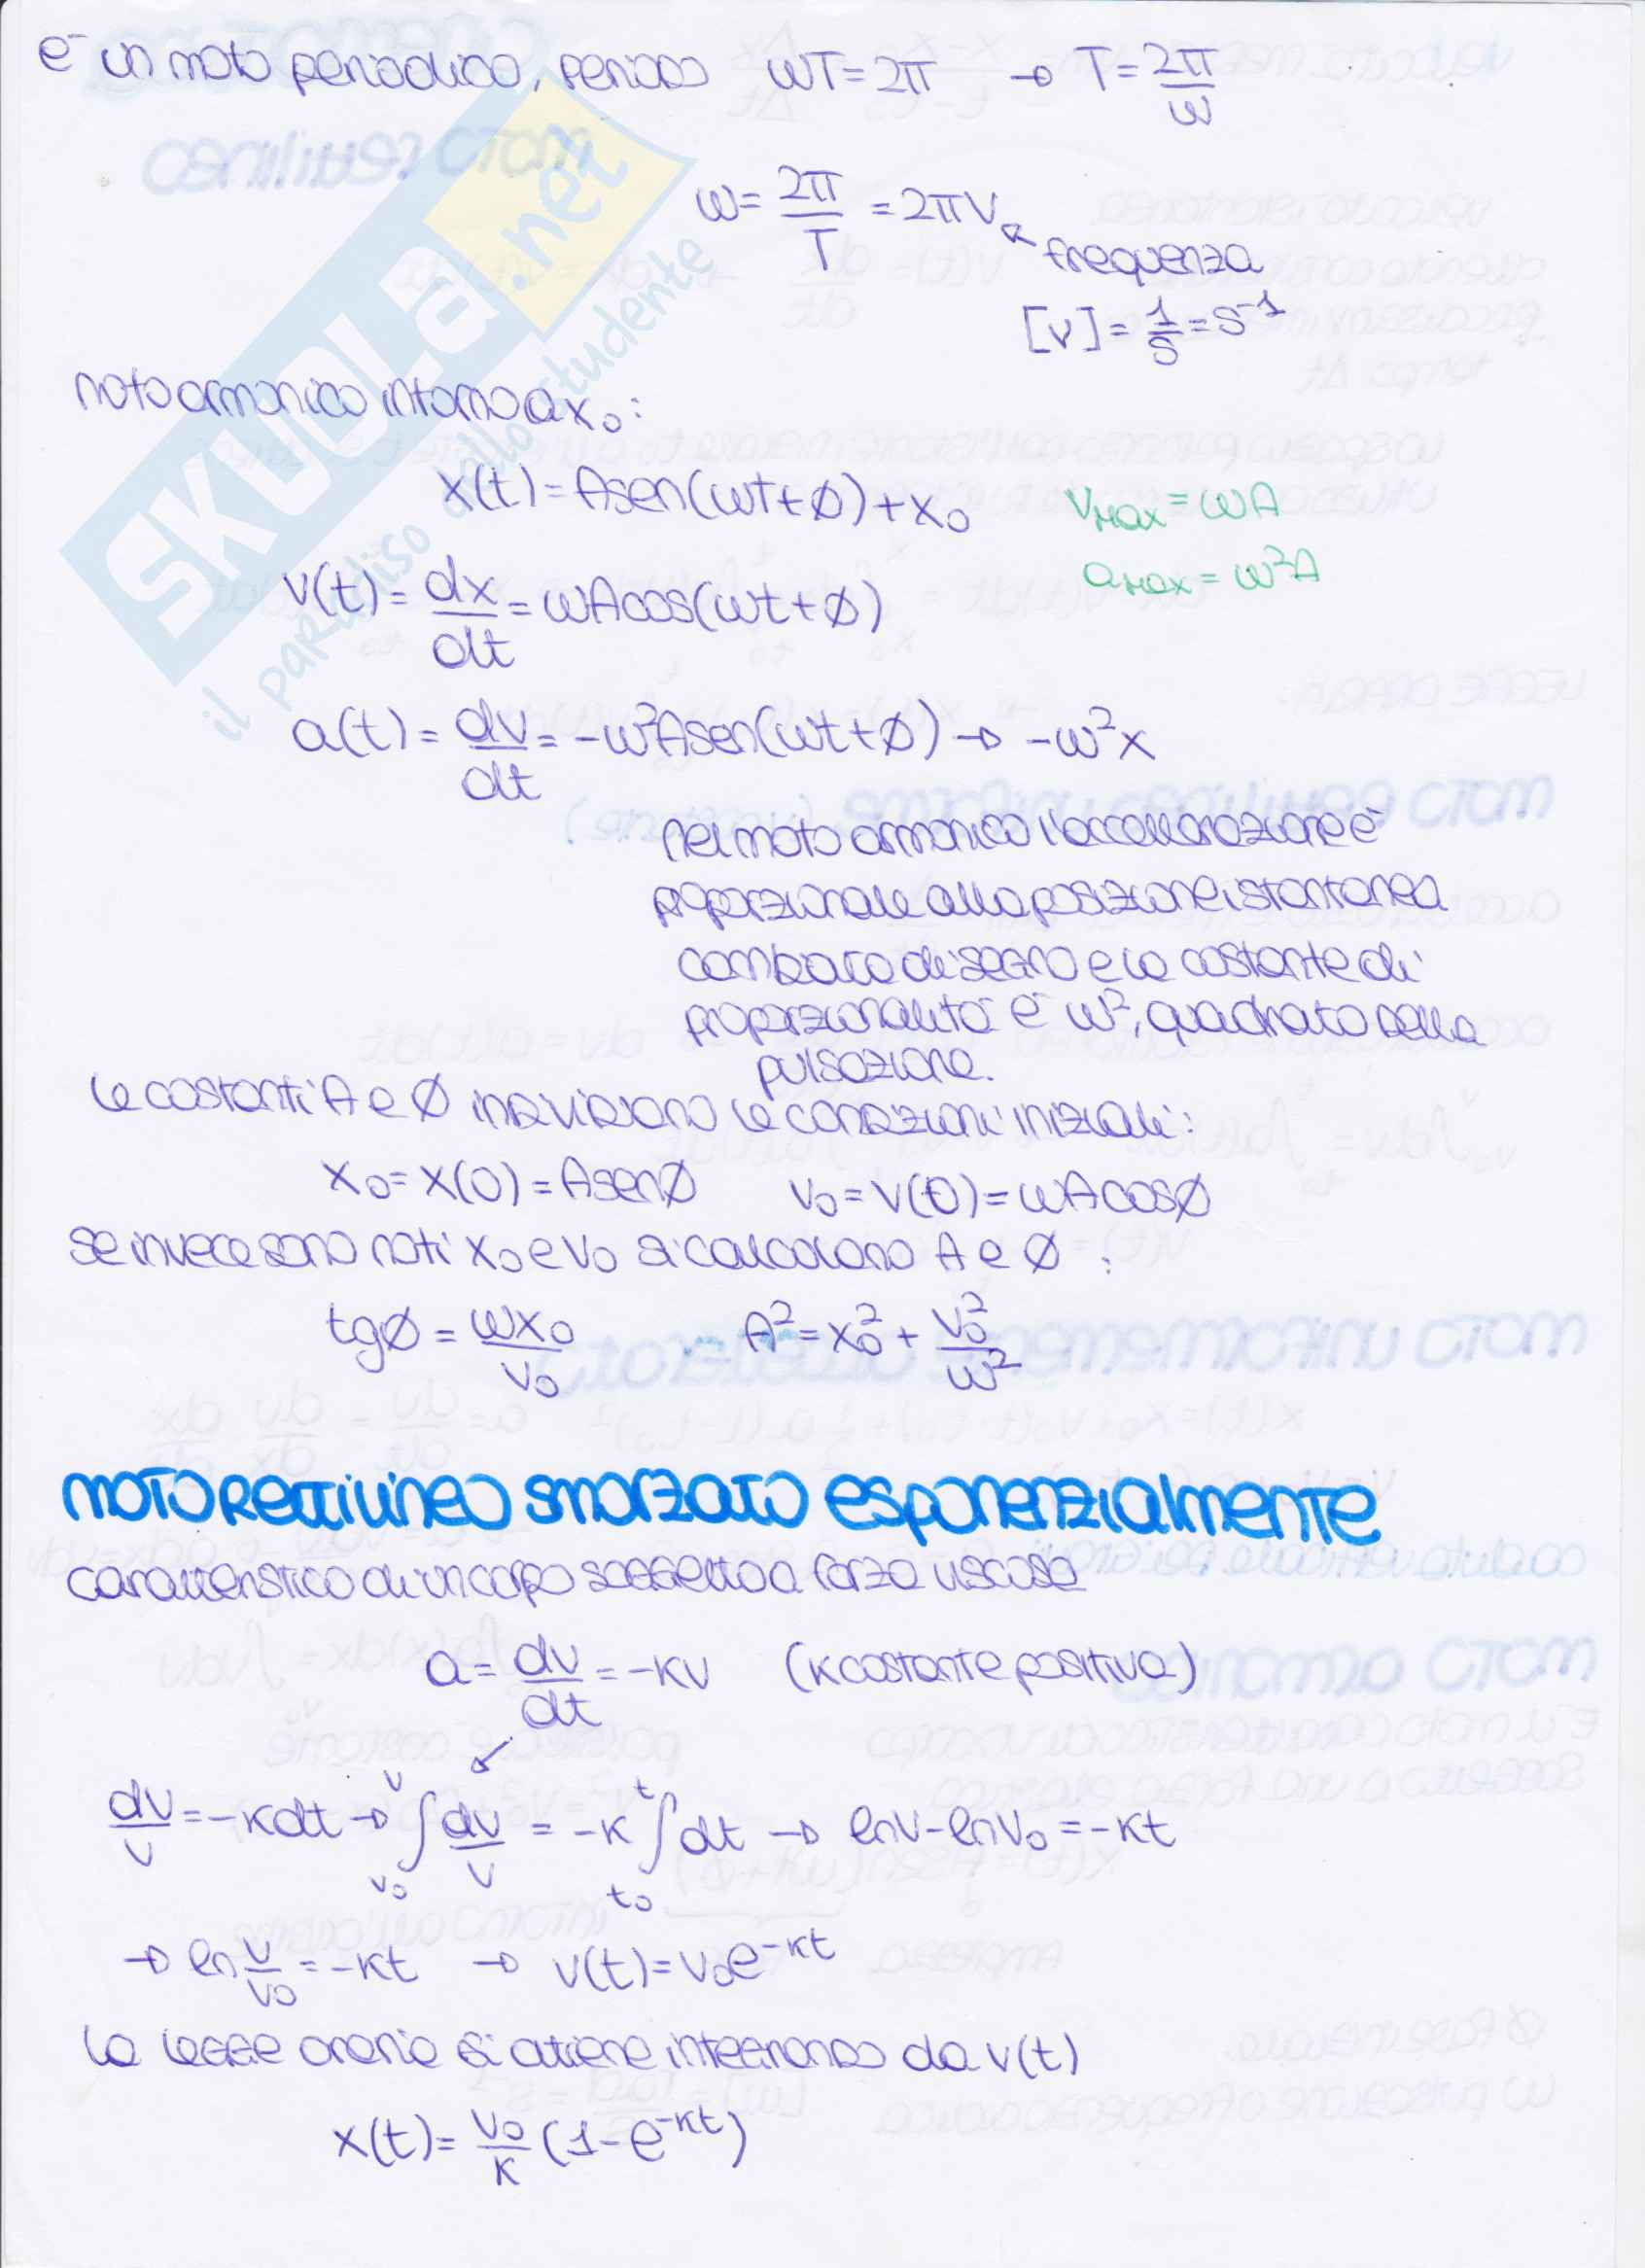 è un moto periodico, periodo ωT=2π → T=2π/ω
ω=2π/T=2πν
frequenza
[ν]=1/s=s⁻¹
moto armonico intorno a x₀:
x(t)=Asen(ωT+ø)+x₀
vMAX=ωA
v(t)=dx/dt=ωAcos(ωt+ø)
aMAX=ω²A
a(t)=dv/dt=-ω²Asen(ωt+ø)→ -ω²x
nel moto armonico l'accellerazione è
proporzionale alla posizione istantanea
cambiata di segno e la costante di
proporzionalità è ω², quadrato della
pulsazione.
le costanti A e ø individuano le condizioni iniziali:
x₀=x(0)=Asenø v₀=v(0)=ωAcosø
se invece sono noti x₀ e v₀ si calcolano A e ø :
tgø=ωx₀/v₀ A²=x₀²+v₀²/ω²
MOTO RETTILINEO SMORZATO ESPONENZIALMENTE
caratteristico di un corpo soggetto a forza viscosa
a=dv/dt=-kv (k costante positiva)
dv/v=-kdt→∫v₀v dv/v=-k∫t₀t dt→ lnv-lnv₀=-kt
→ ln v/v₀=-kt → v(t)=v₀e⁻ᵏᵗ
la legge oraria si ottiene integrando da v(t)
x(t)=v₀/k(1-e⁻ᵏᵗ)
SKUOLA.net
il paradiso dello studente